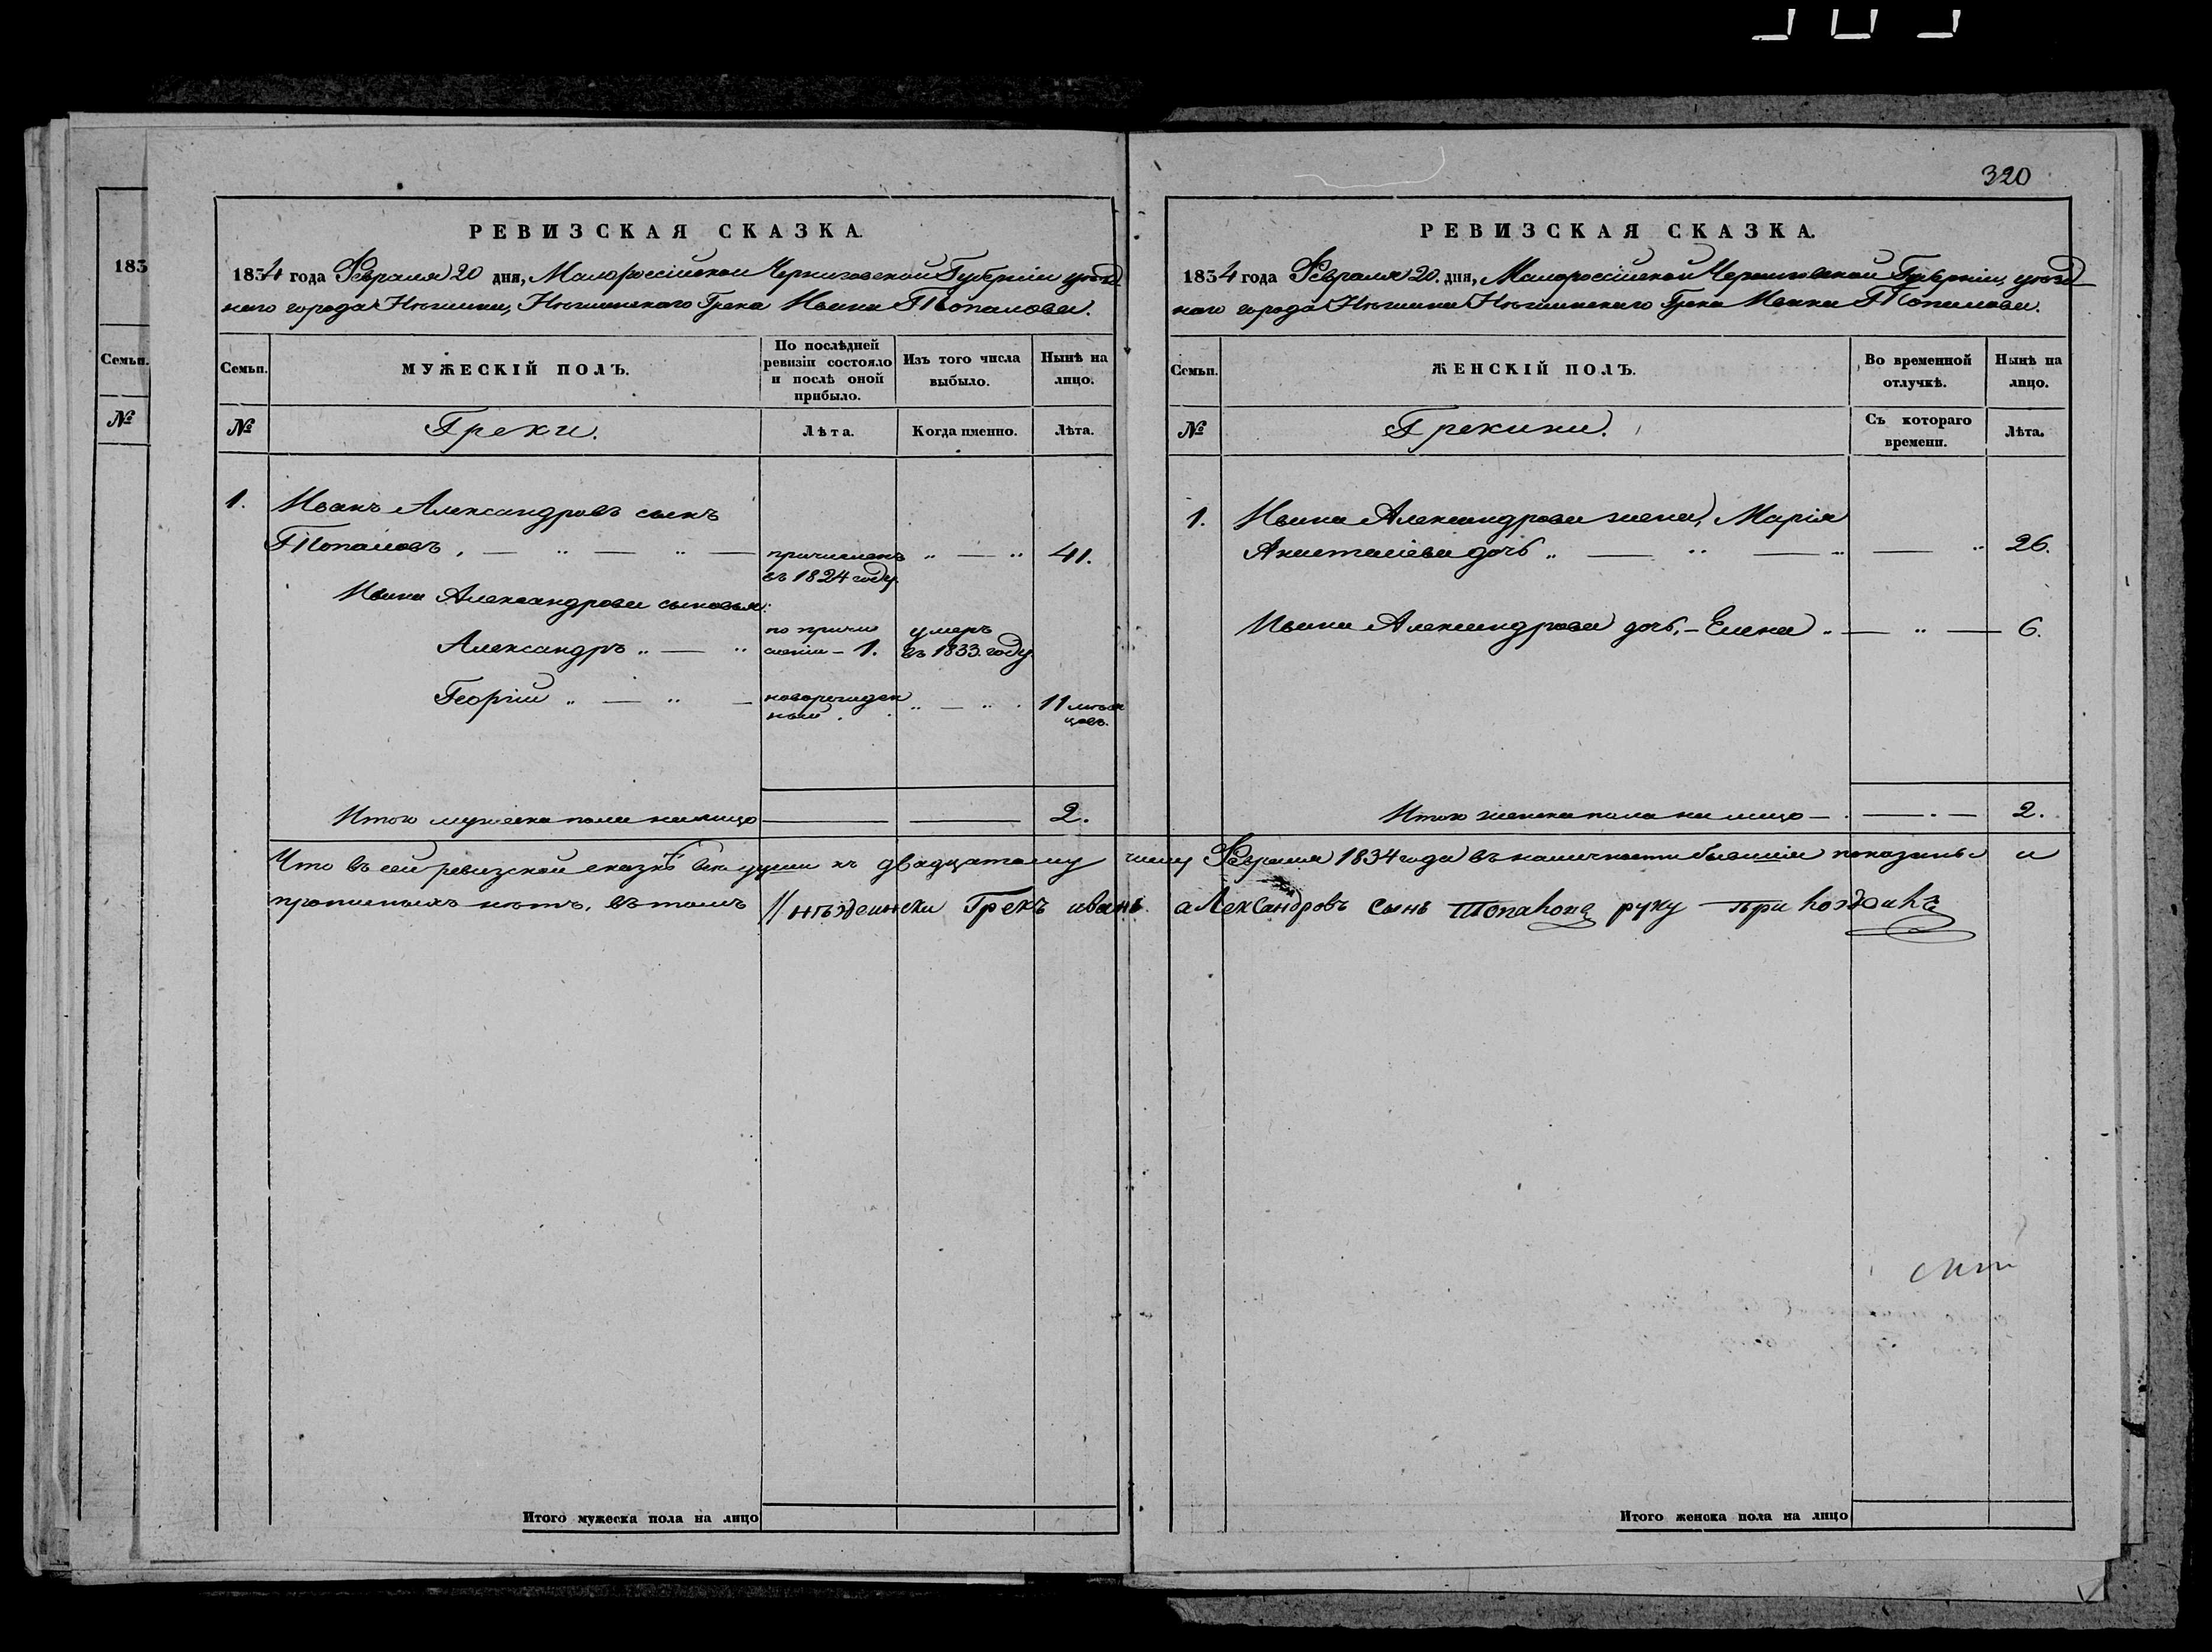 320
183
Семьи.
№
РЕВИЗСКАЯ СКАЗКА.
1834 года Февраля 20 дня, Малороссійской Черниговской Губерніи уѣзд
наго города Нѣжина, Нѣжинскаго Грека Ивана Попалова.
Семьи.
МУЖЕСКІЙ ПОЛЪ.
По послѣдней ревизіи состояло и послѣ оной прибыло.
Изъ того числа выбыло.
Нынѣ на лицо.
№
Греки.
Лѣта.
Когда именно.
Лѣта.
1. Иванъ Александровъ сынъ
Попаловъ, — „ — „ — причисленъ „ — „ 41.
въ 1824 году.
Ивана Александрова сыновья:
по причи умеръ
Александръ „ — „ сленіи — 1. въ 1833. году.
Георгій „ — „ — новорожден „ — „ . 11 мѣся
ный . . цовъ.
Итого мужеска пола на лицо — — 2.
Итого мужеска пола на лицо
РЕВИЗСКАЯ СКАЗКА.
1834 года Февраля 20. дня, Малороссійской Черниговской Губерніи, уѣзд
наго города Нѣжина Нѣжинскаго Грека Ивана Попалова.
Семьи.
ЖЕНСКІЙ ПОЛЪ.
Во временной отлучкѣ.
Нынѣ на лицо.
№
Грекини.
Съ котораго времени.
Лѣта.
1. Ивана Александрова жена, Марія
Анастасіева дочь „ — „ — „ — „ 26.
Ивана Александрова дочь, — Елена „ — „ — 6.
Итого женска пола на лицо — . — . — 2.
Что въ сей ревизской сказкѣ всѣ души къ двадцатому числу Февраля 1834 года въ наличности бывшія показаны и
прописныхъ нѣтъ, въ томъ // нѣжински Грекъ иванъ алеКСандровъ Сынъ руку
Итого женска пола на лицо